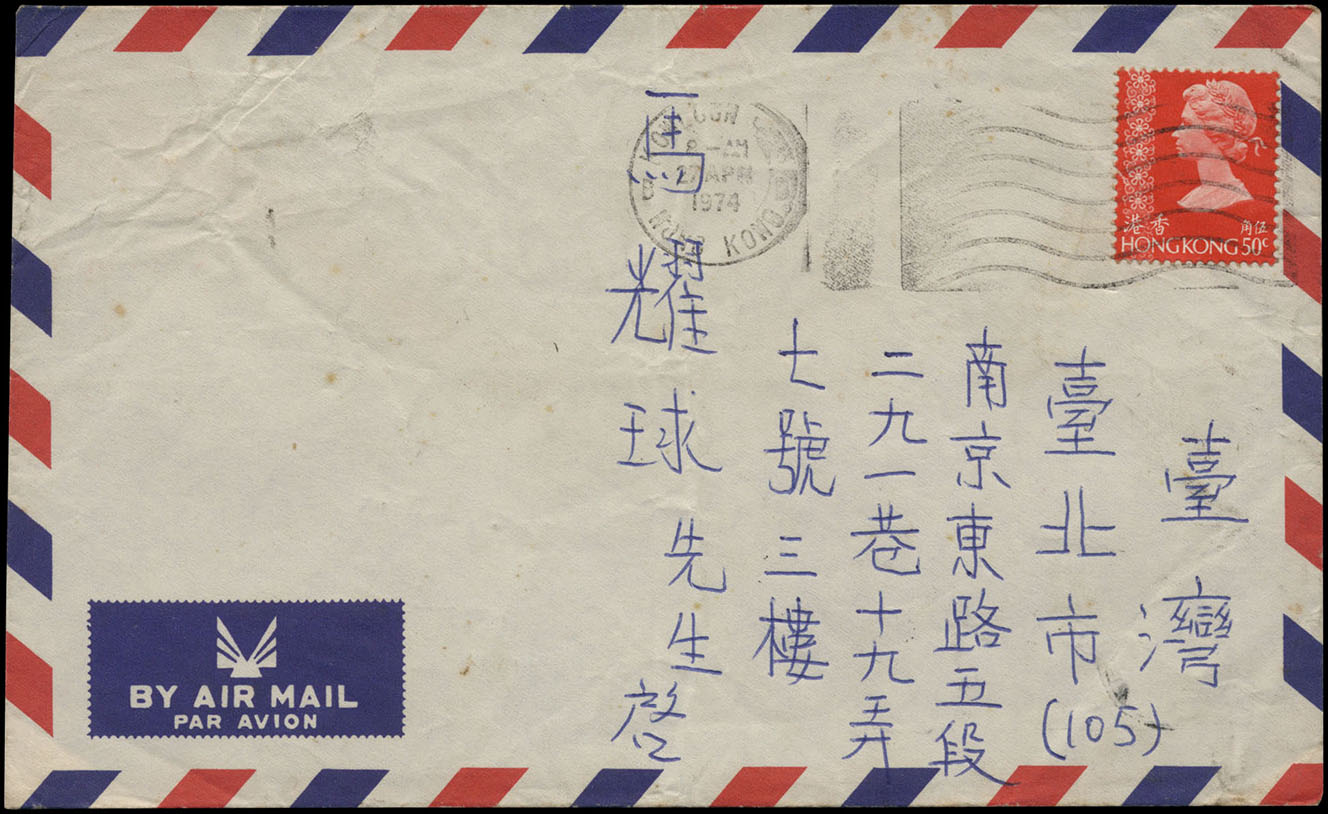 臺灣
臺北市(105)
南京東路五段
二九一巷十九弄
七號三樓
馬耀球先生啓
KOWLOON
8-AM
27 APR
1974
HONG KONG
香港
伍角
HONG KONG 50c
BY AIR MAIL
PAR AVION